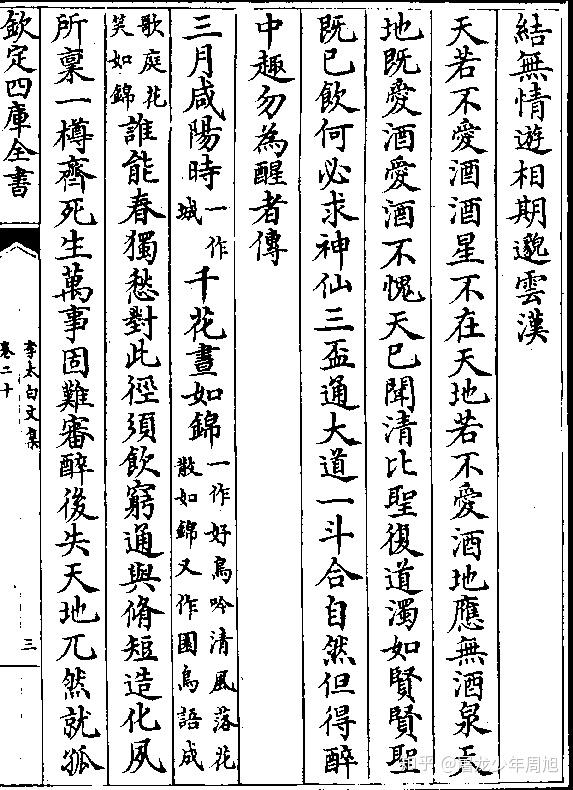 結無情遊相期邈雲漢
天若不愛酒酒星不在天地若不愛酒地應無酒泉天
地既愛酒愛酒不愧天已聞清比聖復道濁如賢賢聖
既已飲何必求神仙三盃通大道一斗合自然但得醉
中趣勿為醒者傳
三月咸陽時一作城千花晝如錦一作好鳥吟清風落花散如錦又作園鳥語成
歌庭花笑如錦誰能春獨愁對此徑須飲窮通與脩短造化夙
所稟一樽齊死生萬事固難審醉後失天地兀然就孤
欽定四庫全書
李太白文集
卷二十
三
知乎 @龙少年周旭